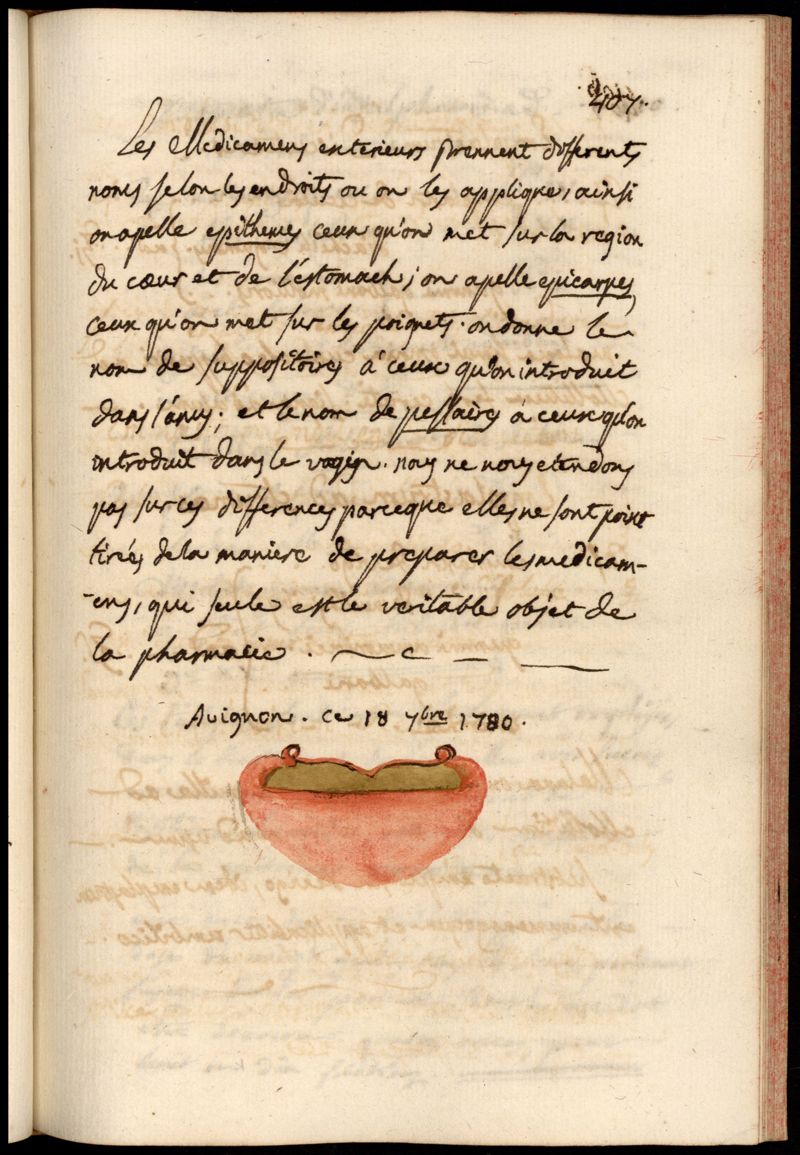 407.
Les Medicamens exterieurs prennent differents
noms selon les endroits ou on les applique, ainsi
on apelle epithemes ceux qu'on met sur la region
du cœur et de l'éstomach; on apelle epicarpes
ceux qu'on met sur les poignets. on donne le
nom de suppositoires à ceux qu'on introduit
dans l'ánus; et le nom de pessaires à ceux qu'on
introduit dans le vagin. nous ne nous etendons
pas sur ces differences parceque elles ne sont point
tirées de la maniere de preparer les medicam-
-ens, qui seule est le veritable objet de
la pharmacie.
Avignon. ce 18 7bre 1780.